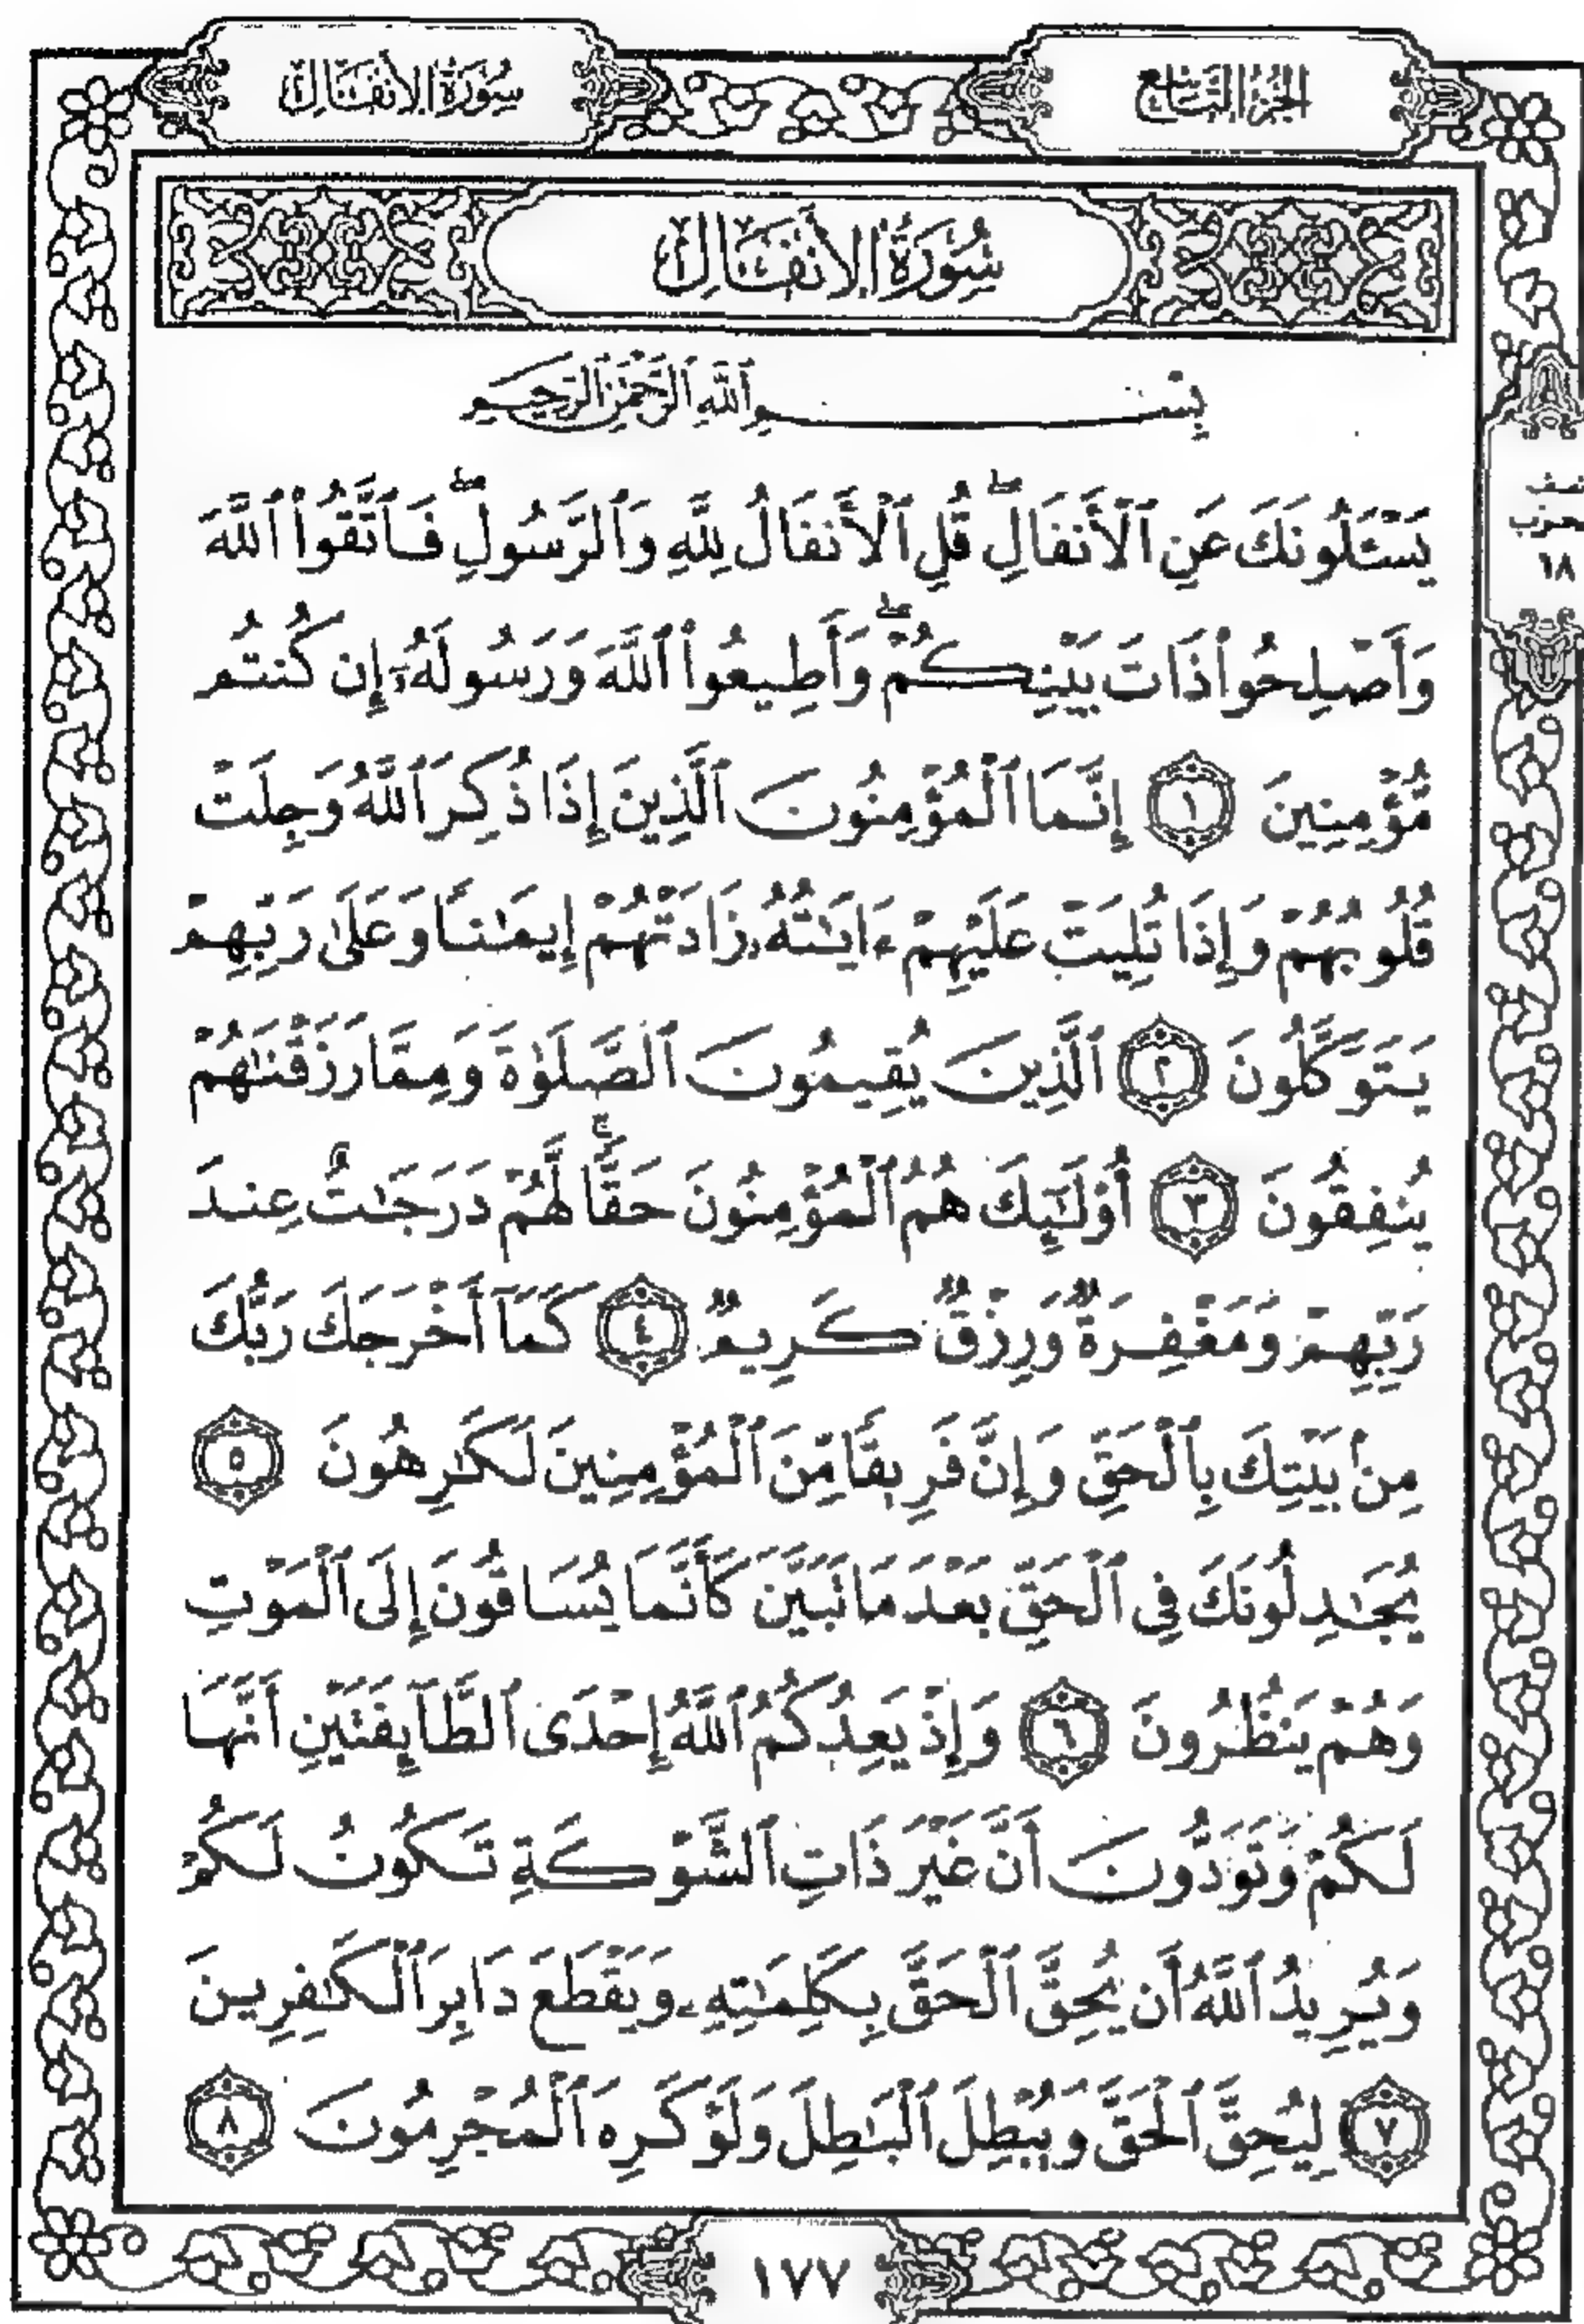 الجزء التاسع
سورة الأنفال
سُورَةُ الأَنفَالِ
بِسْمِ ٱللَّهِ ٱلرَّحْمَٰنِ ٱلرَّحِيمِ
يَسْـَٔلُونَكَ عَنِ ٱلْأَنفَالِ ۖ قُلِ ٱلْأَنفَالُ لِلَّهِ وَٱلرَّسُولِ ۖ فَٱتَّقُوا۟ ٱللَّهَ
وَأَصْلِحُوا۟ ذَاتَ بَيْنِكُمْ ۖ وَأَطِيعُوا۟ ٱللَّهَ وَرَسُولَهُۥٓ إِن كُنتُم
مُّؤْمِنِينَ ١ إِنَّمَا ٱلْمُؤْمِنُونَ ٱلَّذِينَ إِذَا ذُكِرَ ٱللَّهُ وَجِلَتْ
قُلُوبُهُمْ وَإِذَا تُلِيَتْ عَلَيْهِمْ ءَايَٰتُهُۥ زَادَتْهُمْ إِيمَٰنًا وَعَلَىٰ رَبِّهِمْ
يَتَوَكَّلُونَ ٢ ٱلَّذِينَ يُقِيمُونَ ٱلصَّلَوٰةَ وَمِمَّا رَزَقْنَٰهُمْ
يُنفِقُونَ ٣ أُو۟لَٰٓئِكَ هُمُ ٱلْمُؤْمِنُونَ حَقًّا ۚ لَّهُمْ دَرَجَٰتٌ عِندَ
رَبِّهِمْ وَمَغْفِرَةٌ وَرِزْقٌ كَرِيمٌ ٤ كَمَآ أَخْرَجَكَ رَبُّكَ
مِنۢ بَيْتِكَ بِٱلْحَقِّ وَإِنَّ فَرِيقًا مِّنَ ٱلْمُؤْمِنِينَ لَكَٰرِهُونَ ٥
يُجَٰدِلُونَكَ فِى ٱلْحَقِّ بَعْدَ مَا تَبَيَّنَ كَأَنَّمَا يُسَاقُونَ إِلَى ٱلْمَوْتِ
وَهُمْ يَنظُرُونَ ٦ وَإِذْ يَعِدُكُمُ ٱللَّهُ إِحْدَى ٱلطَّآئِفَتَيْنِ أَنَّهَا
لَكُمْ وَتَوَدُّونَ أَنَّ غَيْرَ ذَاتِ ٱلشَّوْكَةِ تَكُونُ لَكُمْ
وَيُرِيدُ ٱللَّهُ أَن يُحِقَّ ٱلْحَقَّ بِكَلِمَٰتِهِۦ وَيَقْطَعَ دَابِرَ ٱلْكَٰفِرِينَ
٧ لِيُحِقَّ ٱلْحَقَّ وَيُبْطِلَ ٱلْبَٰطِلَ وَلَوْ كَرِهَ ٱلْمُجْرِمُونَ ٨
نصف
الحزب
١٨
١٧٧